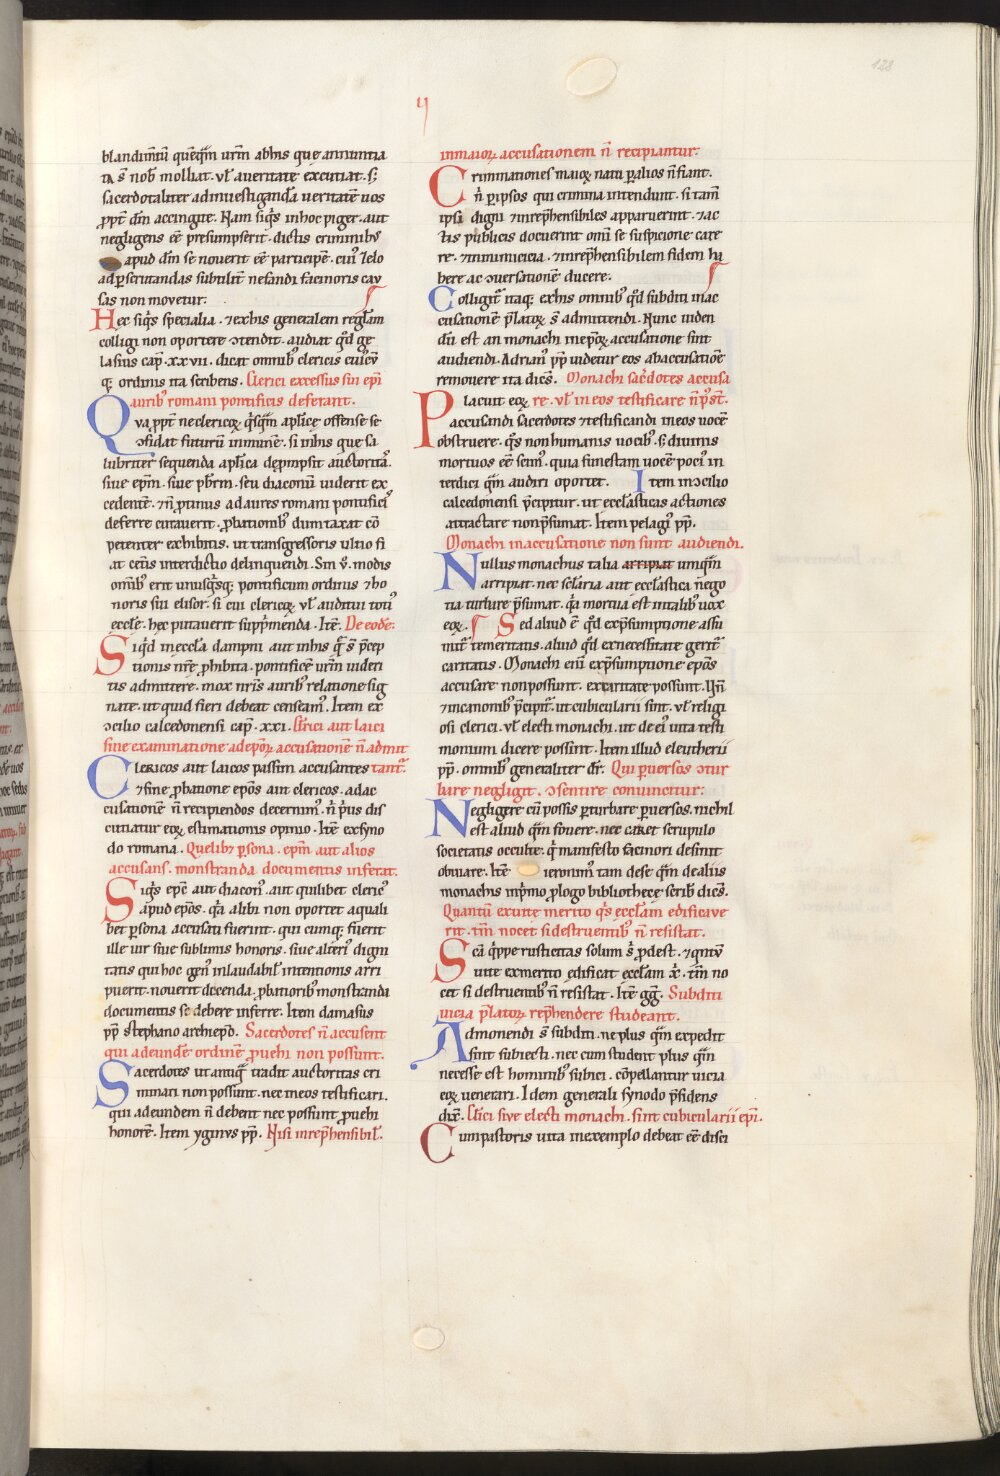 128
ij
blandim̄tū quēq̄m urm̄ abhis que annuntia
ta s̄ nob̄ molliat. vl̓ aueritate excutiat. s;
sacerdotaliter adinuestiganda ueritatē uos
ꝓpt̄ dm̄ accingite. Nam siq̄s inhoc piger. aut
negligens eē presumpserit. dictis criminibꝰ
apud dm̄ se nouerit eē participē. cuiꝰ zelo
adꝑscrutandas subtilit̄ nefandi facinoris cau
sas non movetur.
Hec siq̄s specialia. ⁊exhis generalem regl̄am
colligi non oportere ↄtendit. audiat qd̓ ge
lasius cap̄. xxvii. dicat omnibꝰ clericis cuiꝰcū
q; ordinis ita scribens. Clerici excessus sui ep̄i
auribꝰ romani pontificis deferant.
Qua ꝓpt̄ ne clericoꝝ q̄sq̄m aplīcę offense se
ↄfidat futurū inmunē. si inhis que sa
lubriter sequenda aplīca dep̄mpsit auctoritas.
siue ep̄m. siue pb̄rm. seu diaconū uiderit ex
cedentē. ⁊n̄ ꝓtinus ad aures romani pontificꝭ
deferre curauerit. ꝓbationibꝰ dumtaxat cō
petenter exhibitis. ut transgressoris ultio fi
at cēris interdictio delinquendi. Sin ꝟ. modis
omībꝰ erit unusq̄sq; pontificum ordinis ⁊ho
noris sui elisor. si cui clericoꝝ vl̓ auditui totiꝰ
eccl̄e. hec putauerit supp̄menda. Itē. De eodē.
Siqd̓ in eccl̄a dampni aut inhis q̄ s̄ p̄cep
tionis nr̄e ꝓhibita. pontificē urm̄ uideri
tis admittere. mox nr̄is auribꝰ relatione sig
nate. ut quid fieri debeat censeamꝰ. Item ex
ↄcilio calcedonensi cap̄. xxi. Clerici aut laici
sine examinatione ad ep̄oꝝ accusationē n̄ admit
Clericos aut laicos passim accusantes tant̄.
⁊sine ꝓbatione ep̄os aut clericos. ad ac
cusationē n̄ recipiendos decernimꝰ. n̄ p̓us dis
cutiatur eoꝝ estimationis opinio. Itē ex syno
do romana. Quelibꝫ ꝑsona. ep̄m aut alios
accusans. monstranda documentis inferat.
Siq̄s ep̄c̄ aut diaconꝰ. aut quilibet clericꝰ
apud ep̄os. q̄a alibi non oportet a quali
bet ꝑsona accusati fuerint. qui cumq; fuerit
ille uir siue sublimis honoris. siue alteriꝰ digni
tatis qui hoc genꝰ inlaudabil̓ intentionis arri
puerit. nouerit docenda. ꝓbationibꝰ monstranda
documentis se debere inferre. Item damasus
pp̄ stephano archiep̄o. Sacerdotes n̄ accusent
qui ad eundē ordinē ꝓuehi non possunt.
Sacerdotes ut antiq̄ tradit auctoritas cri
minari non possunt. nec in eos testificari.
qui ad eundem n̄ debent nec possunt ꝓuehi
honorē. Item yginus pp̄. Nisi inrep̄hensibil̓.
in maioꝝ accusationem n̄ recipiantur.
Criminationes maioꝝ natu ꝑ alios n̄ fiant.
n̄ ꝑ ipsos qui crimina intendunt. si tam̄
ipsi digni ⁊inrep̄hensibiles apparuerint. ⁊ac
tis publicis docuerint omī se suspicione care
re. ⁊inimicicia. ⁊inrep̄hensibilem fidem ha
bere ac ↄuersationē ducere.
Colligit̄ itaq; exhis omnibꝰ qd̓ subditi inac
cusationē p̄latoꝝ s̄ admittendi. Nunc uiden
dū est an monachi in ep̄oꝝ accusatione sint
audiendi. Adrianꝰ pp̄ uidetur eos ab accusatiōe
remouere ita dicēs. Monachi sac̓dotes accusa
re. vl̓ in eos testificare n̄ p̄st̄.
Placuit eoꝝ
accusandi sacerdotes ⁊testificandi in eos uocē
obstruere. q̄s non humanis uocibꝰ. s; diuinis
mortuos eē scimꝰ. quia funestam uocē pociꝰ in
terdici q̄m audiri oportet. Item inↄcilio
calcedonensi p̄cipitur. ut eccl̄asticas actiones
attractare non p̄sumat. Item pelagiꝰ pp̄.
Monachi in accusatione non sunt audiendi.
Nullus monachus talia arripiat umq̄m
arripiat. nec sclāria aut eccl̄astica nēgo
tia turbare p̄sumat. q̄a mortua est in talibꝰ uox
eoꝝ. Sed aliud ē qd̓ ex p̄sumptione assu
mit̄ temeritatis. aliud qd̓ ex necessitate gerit̄
caritatis. Monachi enī ex p̄sumptione ep̄os
accusare non possunt. ex caritate possunt. Un̄
⁊in canonibꝰ p̄cipit̄. ut cubicularii sint. vl̓ religi
osi clerici. vl̓ electi monachi. ut de eiꝰ uita testi
monium dicere possint. Item illud eleutherii
pp̄. omnibꝰ generaliter dr̄. Qui ꝑuersos ↄtur
bare negligit. ↄsentire conuincitur.
Negligere cū possis ꝑturbare ꝑuersos. nichil
est aliud q̄m fouere. nec caret scrupulo
societatis occulte. q̄ manifesto facinori desinit
obuiare. Itē ieronimꝰ tam de se q̄m de aliis
monachis in p̓mo ꝓlogo bibliothecę scribꝭ dicēs.
Quantū ex uite merito q̄s eccl̄am edificaue
rit. tm̄ nocet si destruentibꝰ n̄ resistat.
Scā q̄ppe rusticitas solum s; ꝓdest. ⁊qntū
uite ex merito edificat eccl̄am x̄. tm̄ no
cet si destruentibꝰ n̄ resistat. Itē gg̅. Subditi
uicia p̄latoꝝ rep̄hendere studeant.
Admonendi s̄ subditi. ne plus q̄m expedit
sint subiecti. nec cum student plus q̄m
necesse est hominibꝰ subici. cōpellantur uicia
eoꝝ uenerari. Idem generali synodo p̄sidens
dix̄. Cl̄ici siue electi monachi. sint cubicularii ep̄i.
Cum pastoris uita in exemplo debeat eē disci